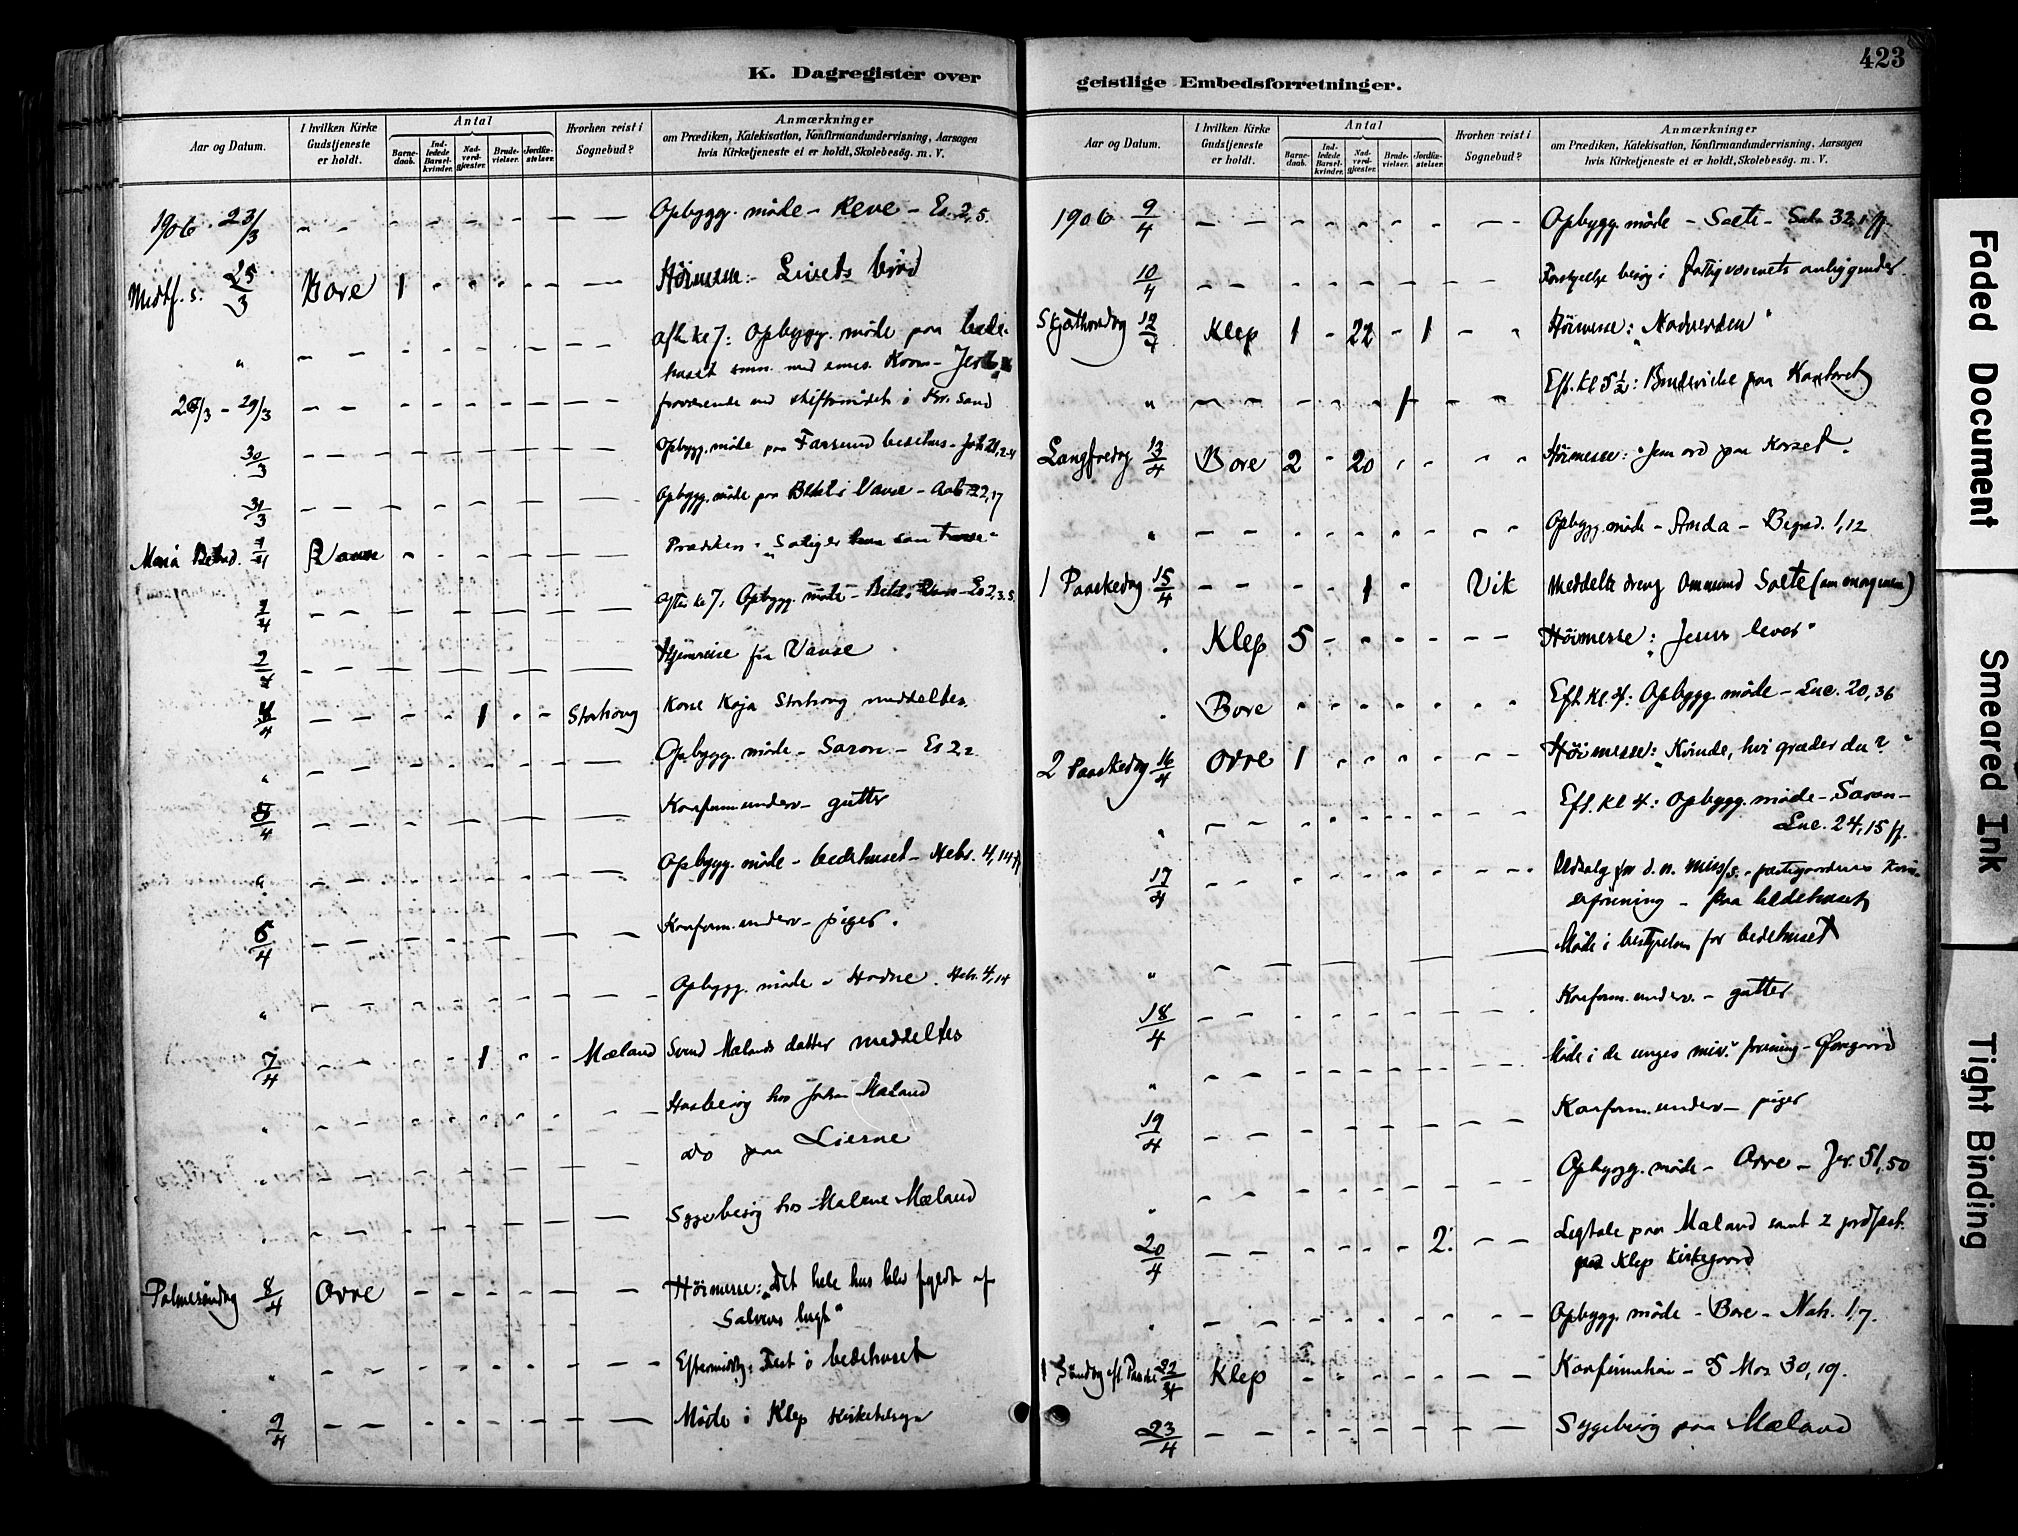 K. Dagregister over
Aar og Datum.
I hvilken Kirke Gudstjeneste er holdt.
Antal
Barne-daab.
Ind-ledede Barsel-kvinder.
Nad-verd-gjester.
Brude-vielser.
Jordfæ-stelser.
Hvorhen reist i Sognebud?
Anmærkninger
om Prædiken, Katekisation, Konfirmandundervisning, Aarsagen
hvis Kirketjeneste ei er holdt, Skolebesøg. m. V.
1906. 23/3 Opbygg. møde - Reve - Es. 2,5.
Midtf. s. 25/3 Bore 1 Høimesse: Livets brød
" aften kl 7: Opbygg. møde paa bede-
huset
26/3 - 29/3 fraværende ved stiftsmødet i Kr. sand
30/3 Opbygg. møde paa Farsund bedehus - Joh
31/3 Opbygg. møde paa Vanse - 22,17
Maria 1/4 Vanse Prædiken - "Salig er
1/4 aften kl 7: Opbygg. møde
2/4 Hjemreise fra Vanse
4/4 1 Storhong Kone Kaja Storhong meddeltes
" Opbygg. møde - Saron - Es 2
5/4 Konfirm. underv - gutter
" Opbygg. møde - bedehuset - Hebr. 4,14 ff
6/4 Konfirm. underv - piger.
" Opbygg. møde - Hodne. Heb. 4,14
7/4 1 Mæland Svend Mælands datter meddeltes
" Husbesøg hos Johan Mæland
do paa Lierne
" Sygebesøg hos Malene Mæland
Palmesøndag 8/4 Orre Høimesse: "Det hele hus blev fyldt af
Salvens lugt"
" Eftermiddg: Fest i bedehuset
9/4 Møde i Klep kirketilsyn
geistlige Embedsforretninger.
423
Aar og Datum.
I hvilken Kirke Gudstjeneste er holdt.
Antal
Barne-daab.
Ind-ledede Barsel-kvinder.
Nad-verd-gjester.
Brude-vielser.
Jordfæ-stelser.
Hvorhen reist i Sognebud?
Anmærkninger
om Prædiken, Katekisation, Konfirmandundervisning, Aarsagen
hvis Kirketjeneste ei er holdt, Skolebesøg. m. V.
1906 9/4 Opbygg. møde - Sælte - 32,1 ff
10/4 Forskjellige besøg i fattigvæsenets anliggender.
Skjærthorsdag 12/4 Klep 1 - 22 - 1 Høimesse: "Nadverden"
" 1 Eft. kl 5 1/2: Brudevielse paa Kontoret
Langfredag 13/4 Bore 2 - 20 Høimesse: "Jesu ord paa Korset.
" Opbygg. møde - Anda - 1,12
1 Paaskedag 15/4 1 Vik Meddelte dreng Ommund Sælte (om morgenen)
" Klep 5 Høimesse: "Jesus lever"
" Bore Eft. kl. 4: Opbygg. møde - Luc. 20,36
2 Paaskedag 16/4 Orre 1 Høimesse: "Kvinde, hvi græder du?"
" Eft. kl 4: Opbygg. møde - Saron -
Luc. 24,15 ff.
17/4 Udsalg for d. n. miss/s. - prestegaardenes Kvin-
deforening - paa bedehuset
" Møde i bestyrelsen for bedehuset
18/4 Konfirm. underv. - gutter
" Møde i de unges miss. forening - Øxnevad
19/4 Konfirm. underv - piger
" Opbygg. møde - Orre - Jer. 51,50
20/4 2. Ligtale paa Mæland samt 2 jordfæst.
paa Klep kirkegaard
" Opbygg. møde - Bore - Nah. 1,7.
1 Søndag eft. Paaske 22/4 Klep Konfirmation - 5 Mos 30,19.
23/4 Sygebesøg paa Mæland
Faded Document
Smeared Ink
Tight Binding